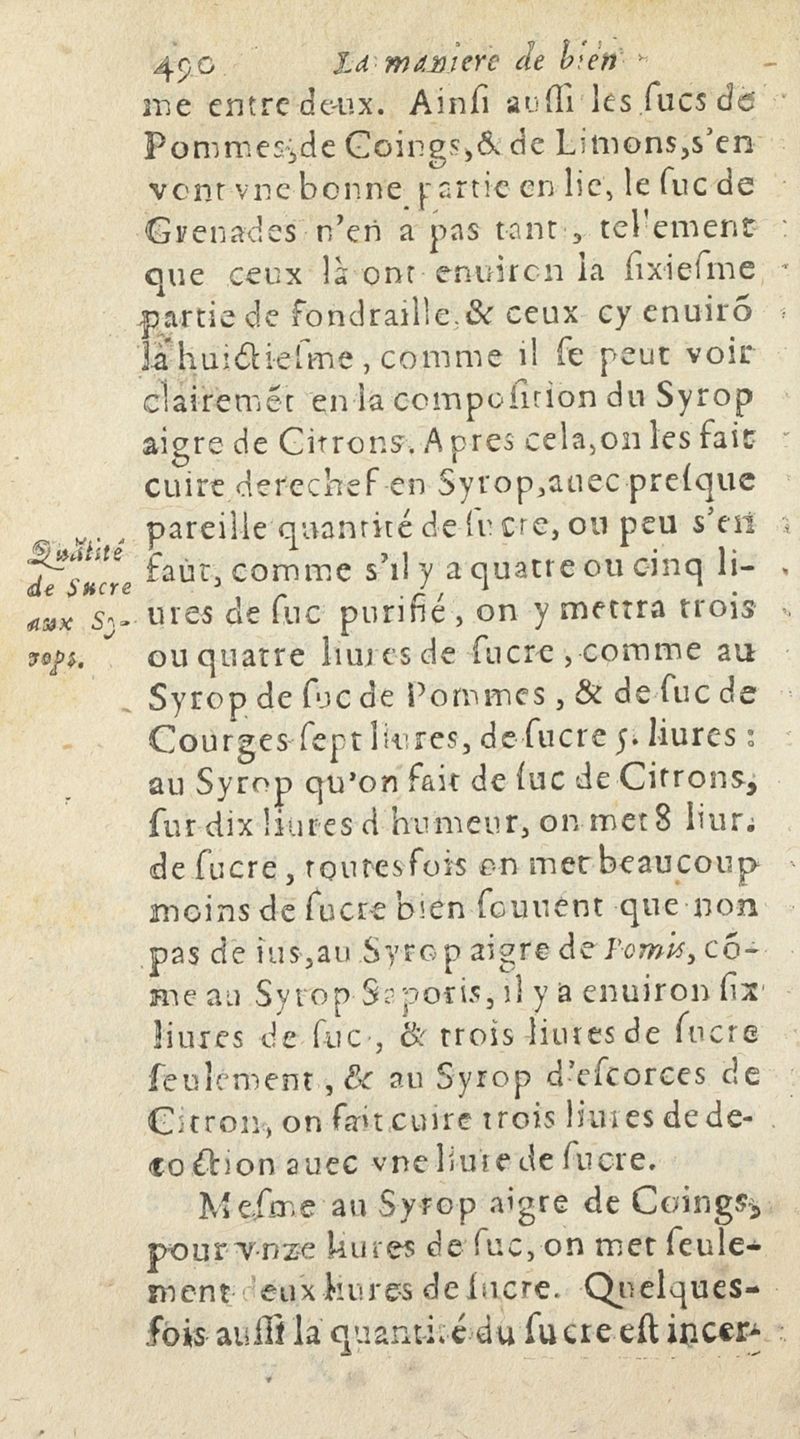 490 La maniere de bien
me entre deux. Ainſi auſſi les ſucs de
Pommes,de Coings,& de Limons,s'en
vont vne bonne partie en lie, le ſuc de
Grenades n'en a pas tant, tellement
que ceux là ont enuiron la ſixieſme
partie de fondraille,& ceux cy enuirõ
la huictieſme, comme il ſe peut voir
clairemẽt en la compoſition du Syrop
aigre de Citrons. Apres cela,on les fait
cuire derechef en Syrop,auec preſque
pareille quantité de ſucre, ou peu s'en
faut, comme s'il y a quatre ou cinq li-
ures de ſuc purifié, on y mettra trois
ou quatre liures de ſucre, comme au
Syrop de ſuc de Pommes, & de ſuc de
Courges ſept liures, de ſucre 5. liures :
au Syrop qu'on fait de ſuc de Citrons,
ſur dix liures d humeur, on met 8 liur.
de ſucre, toutesfois on met beaucoup
moins de ſucre bien ſouuent que non
pas de ius,au Syrop aigre de Pomis, cõ-
me au Syrop Saporis, il y a enuiron ſix
liures de ſuc, & trois liures de ſucre
ſeulement, & au Syrop d'eſcorces de
Citron, on fait cuire trois liures de de-
coction auec vne liure de ſucre.
Meſme au Syrop aigre de Coings,
pour vnze liures de ſuc, on met ſeule-
ment deux liures de ſucre. Quelques-
fois auſſi la quantité du ſucre eſt incer-
Quãtité
de Sucre
aux Sy-
rops.